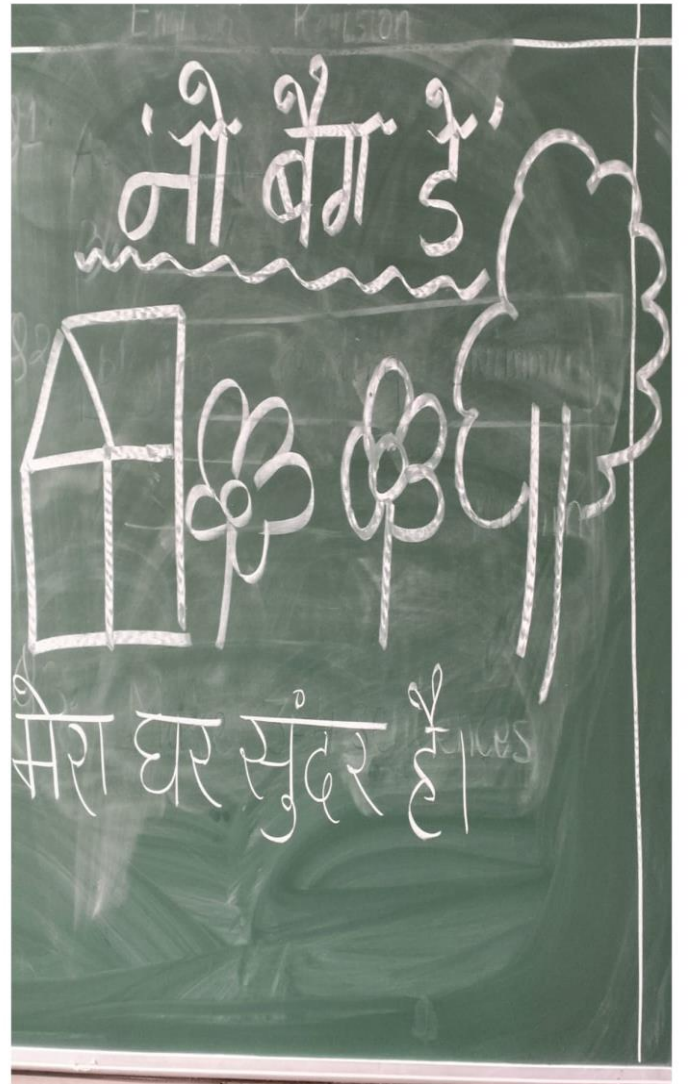 English Revision
'नो बैग डे'
मेरा घर सुंदर है।